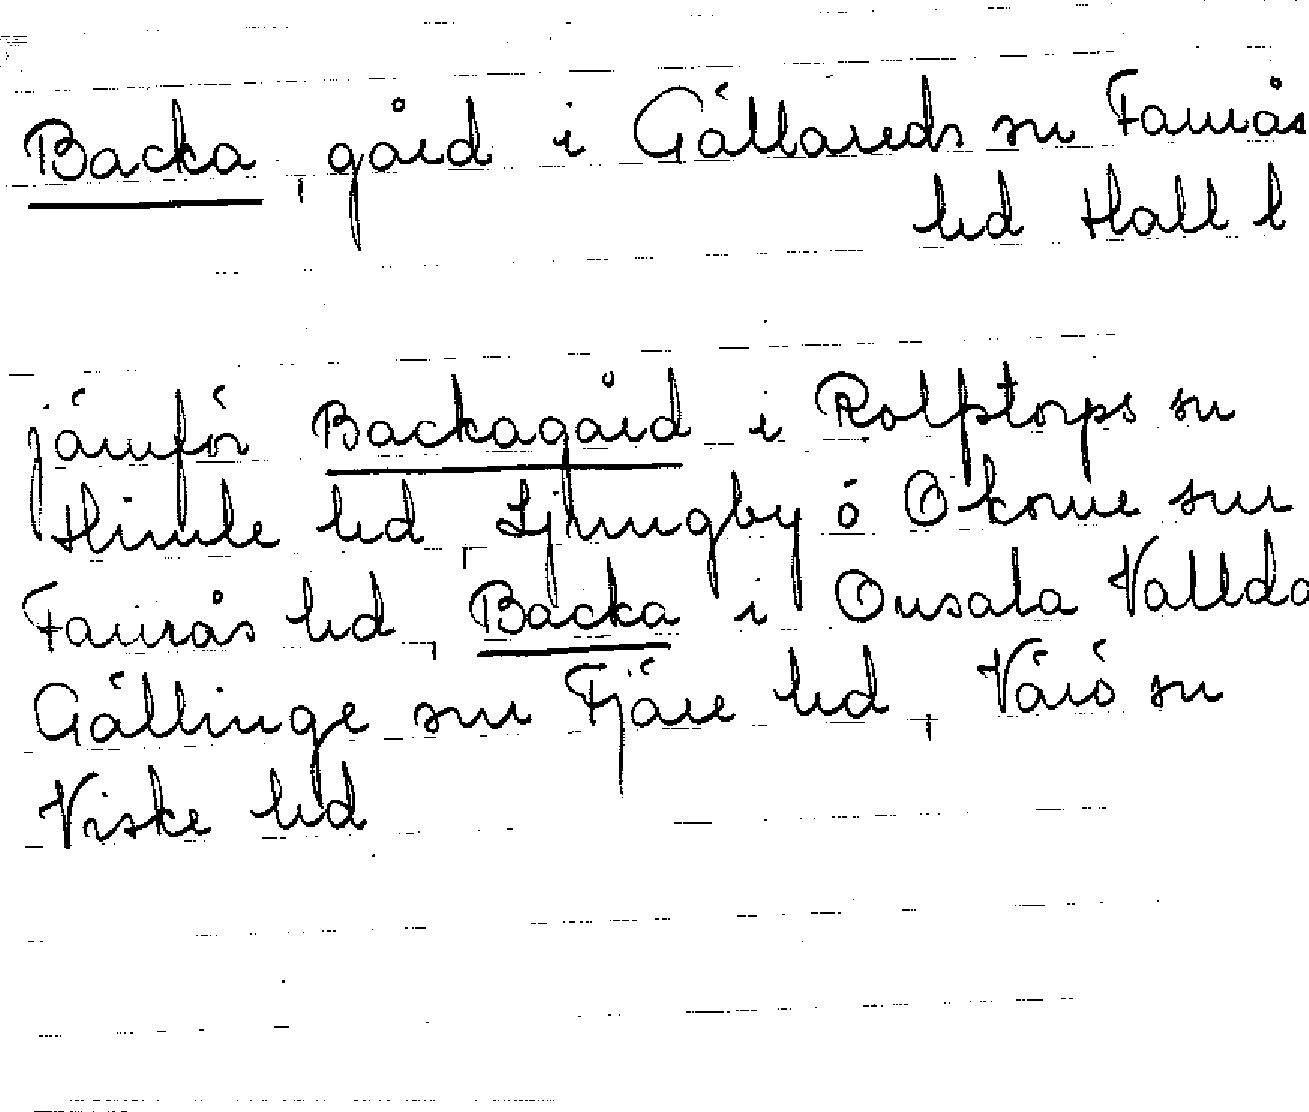 Backa, gård i Gällareds sn Faurås
hd Hall l
jämför Backagård i Rolfstorps sn
Himle hd, Ljungby o Okome snr
Faurås hd, Backa i Onsala Vallda
Gällinge snr Fjäre hd, Värö sn
Viske hd